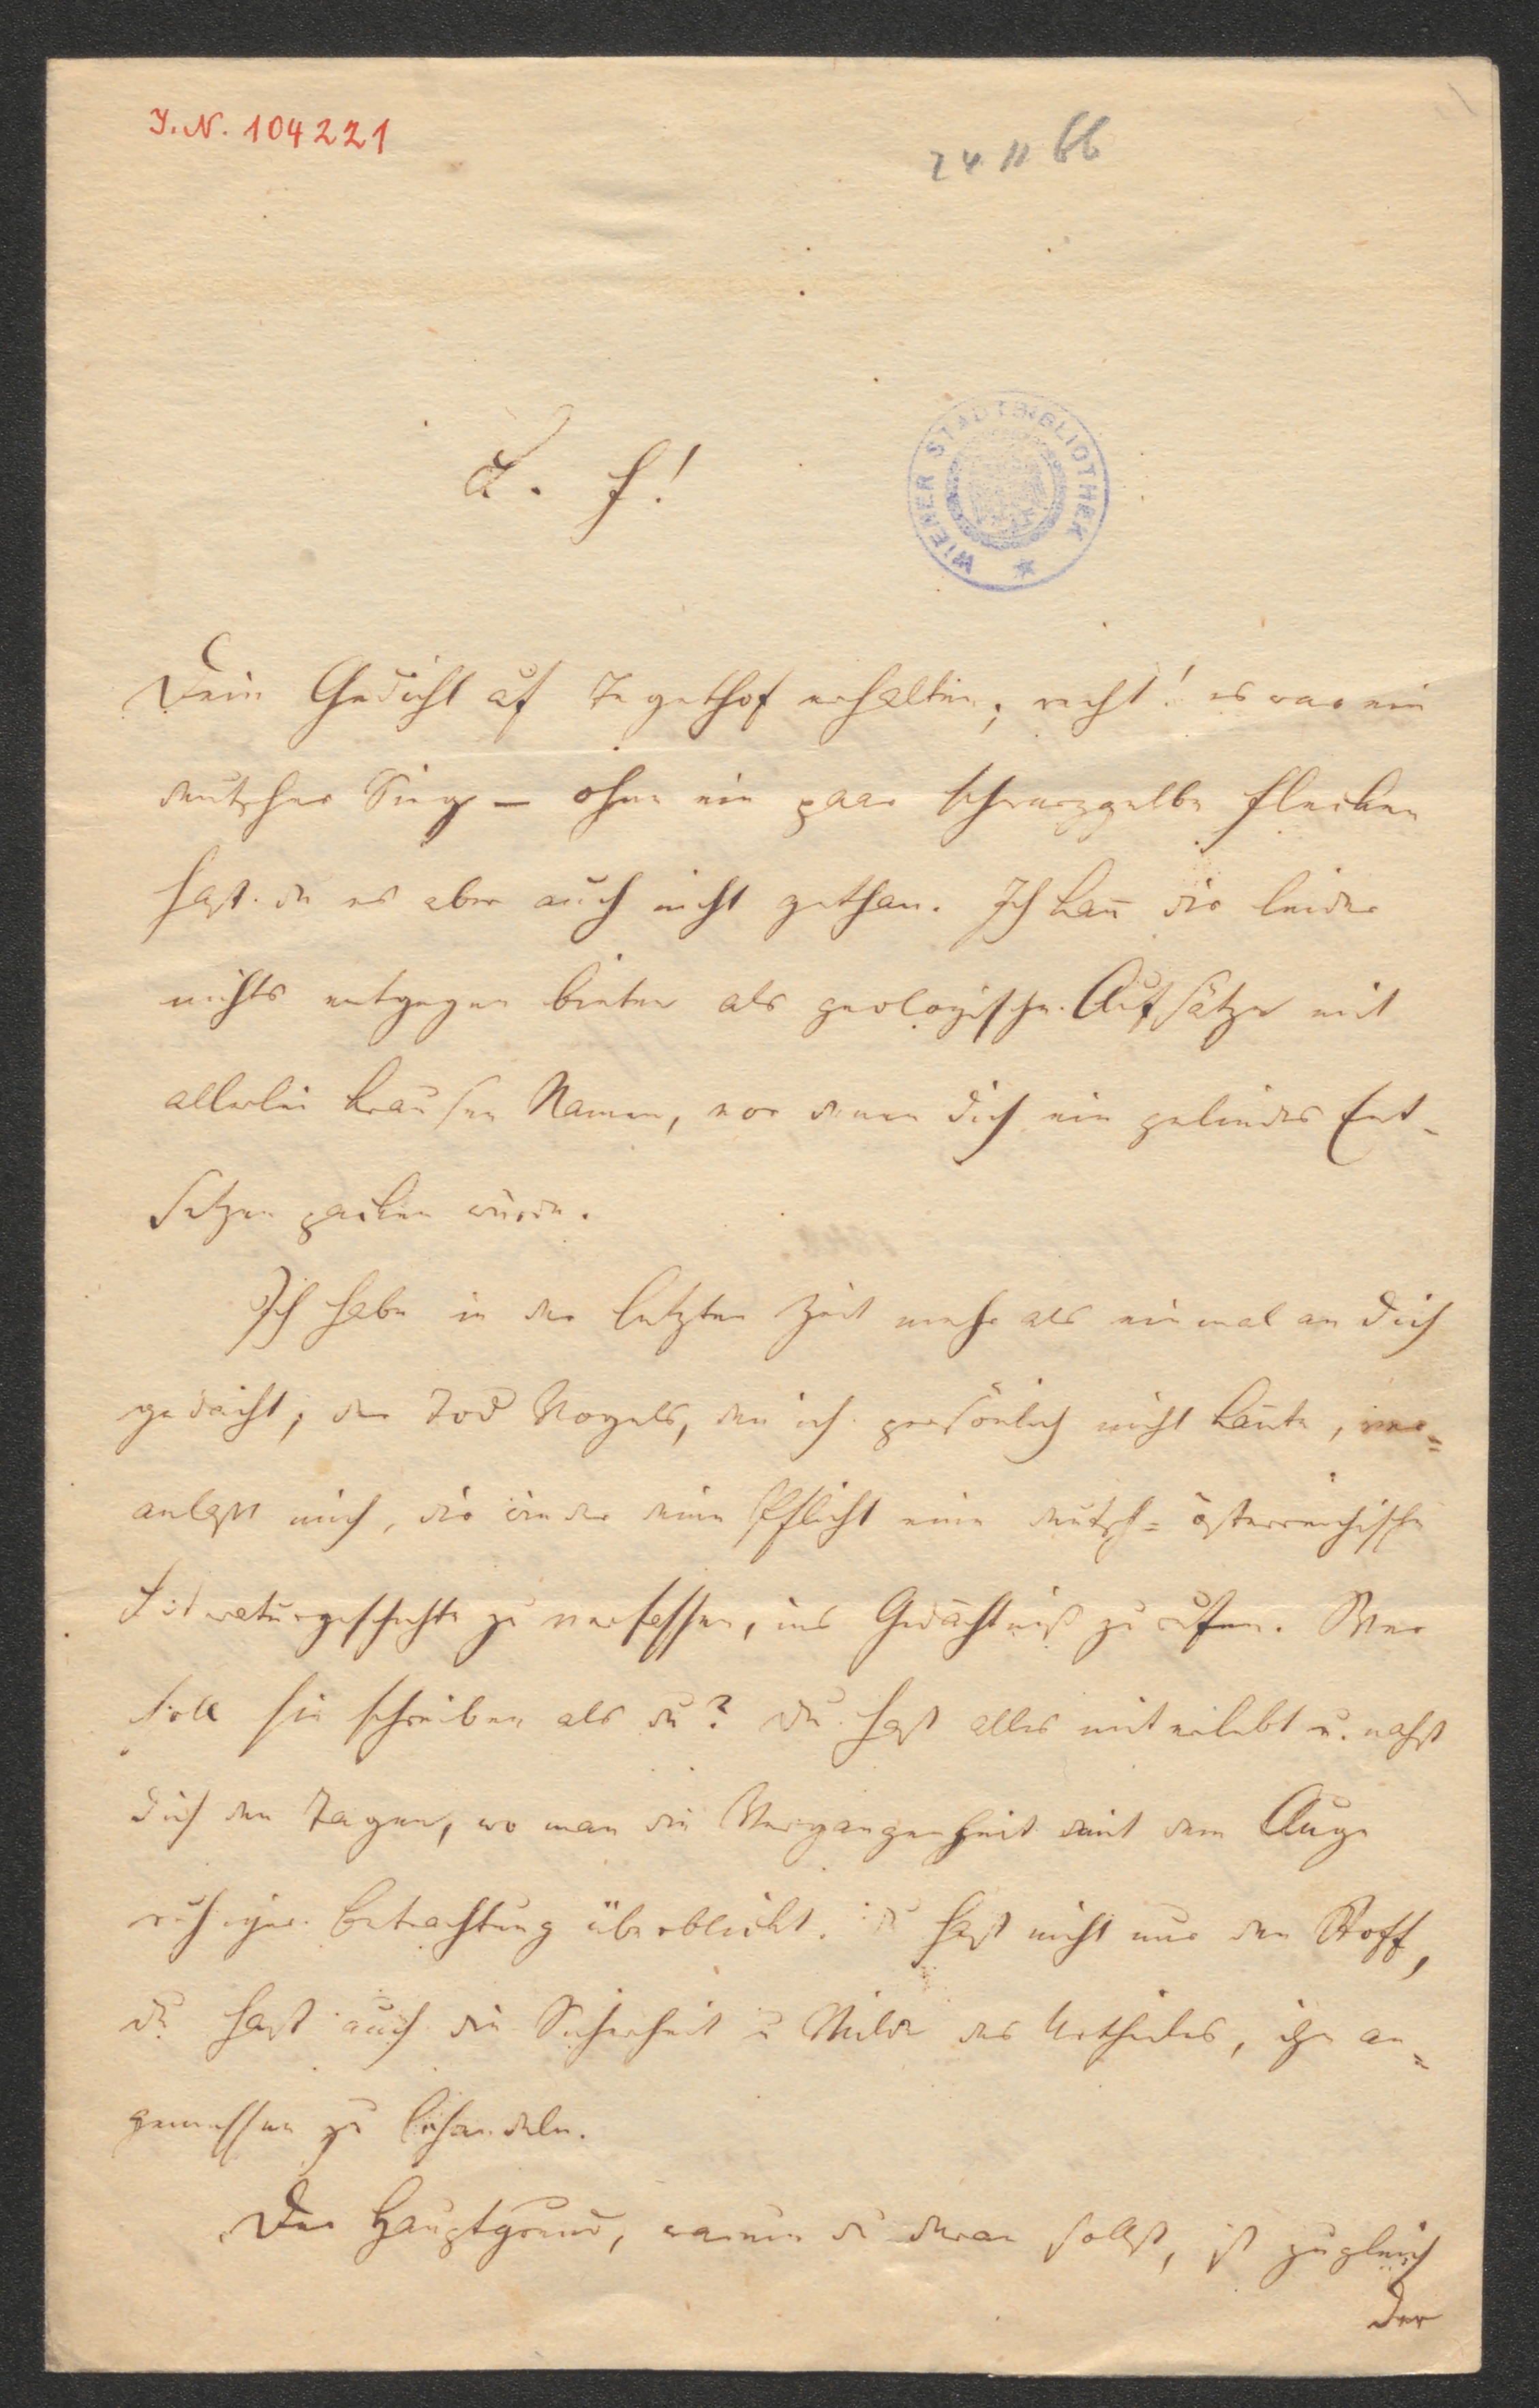 J. N. 104221
24 11 66
L. F!
WIENER STADTBIBLIOTHEK
Dein Gedicht auf Tegethof erhalten; recht! es war ein
deutscher Sieg – ohne ein paar schwarzgelbe Flecken
hast du es aber auch nicht gethan. Ich kan̄ dir leider
nichts entgegen bieten als geologische Aufsätze mit
allerlei krausen Namen, vor denen dich ein gelindes Ent-
setzen packen würde.
Ich habe in der letzten Zeit mehr als einmal an dich
gedacht; der Tod Vogels, den ich persönlich nicht kan̄te, ver=
anlaßt mich, dir wieder deine Pflicht eine deutsch=österreichische
Literaturgeschichte zu verfassen, ins Gedächtniß zu rufen. Wer
soll sie schreiben als du? Du hast alles mit erlebt u. nahst
dich den Tagen, wo man die Vergangenheit mit dem Auge
ruhiger Betrachtung überblickt. du hast nicht nur den Stoff,
du hast auch die Sicherheit u Milde des Urtheiles, ihn an=
gemessen zu behandeln.
Der Hauptgrund, warum du daran sollst, ist zugleich
der